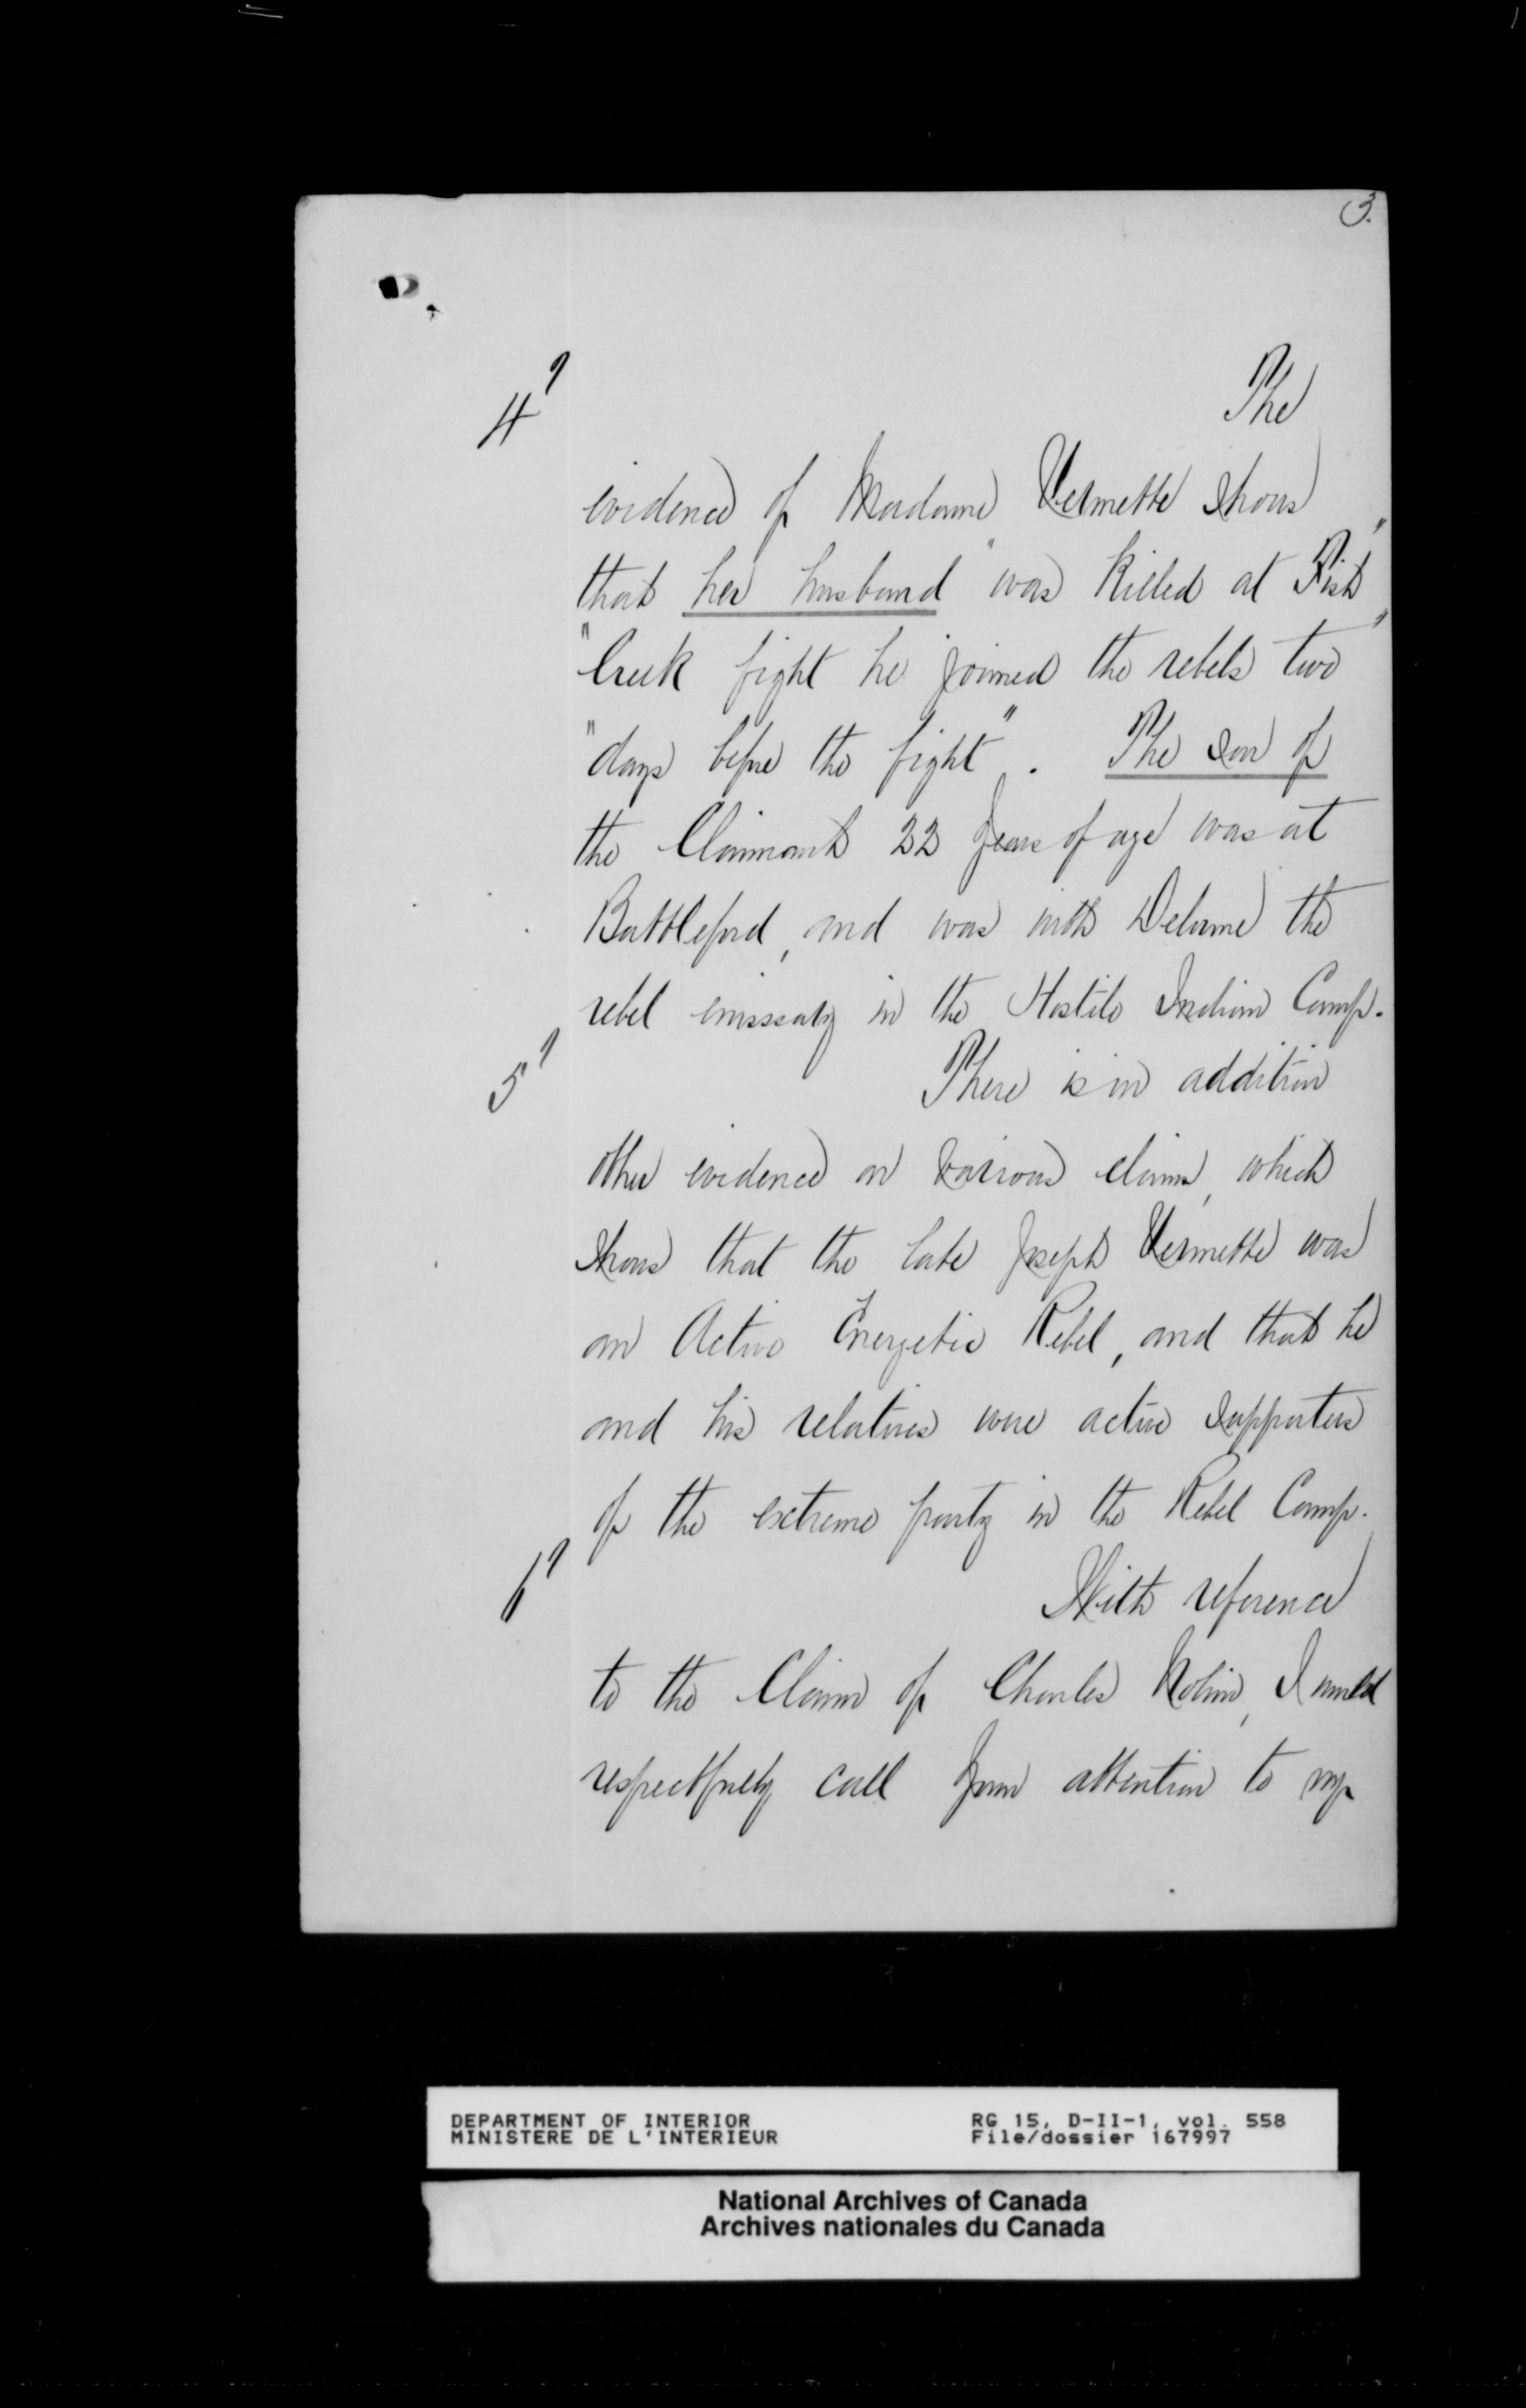 3.
4°
The
evidence of Madame Vermette shows
that her husband "was Killed at Fish"
"Creek fight he joined the rebels two"
"days before the fight". The son of
the Claimant 22 years of age was at
Battleford, and was with Delorme the
rebel emissary in the Hostile Indian Camp.
5°
There is in addition
other evidence on various claims, which
shows that the late Joseph Vermette was
an Active Energetic Rebel, and that he
and his relatives were active supporters
of the extreme party in the Rebel Camp.
6°
With reference
to the Claim of Charles Nolin, I would
respectfully call your attention to my
DEPARTMENT OF INTERIOR
MINISTERE DE L'INTERIEUR
RG 15, D-II-1, vol. 558
File/dossier 167997
National Archives of Canada
Archives nationales du Canada